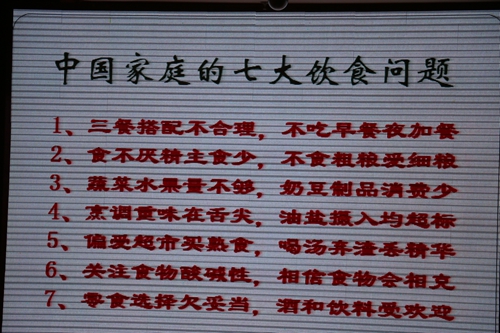 中国家庭的七大饮食问题
1、三餐搭配不合理，不吃早餐夜加餐
2、食不厌精主食少，不食粗粮爱细粮
3、蔬菜水果量不够，奶豆制品消费少
4、烹调重味在舌尖，油盐摄入均超标
5、偏爱超市买熟食，喝汤弃渣丢精华
6、关注食物酸碱性，相信食物会相克
7、零食选择欠妥当，酒和饮料受欢迎